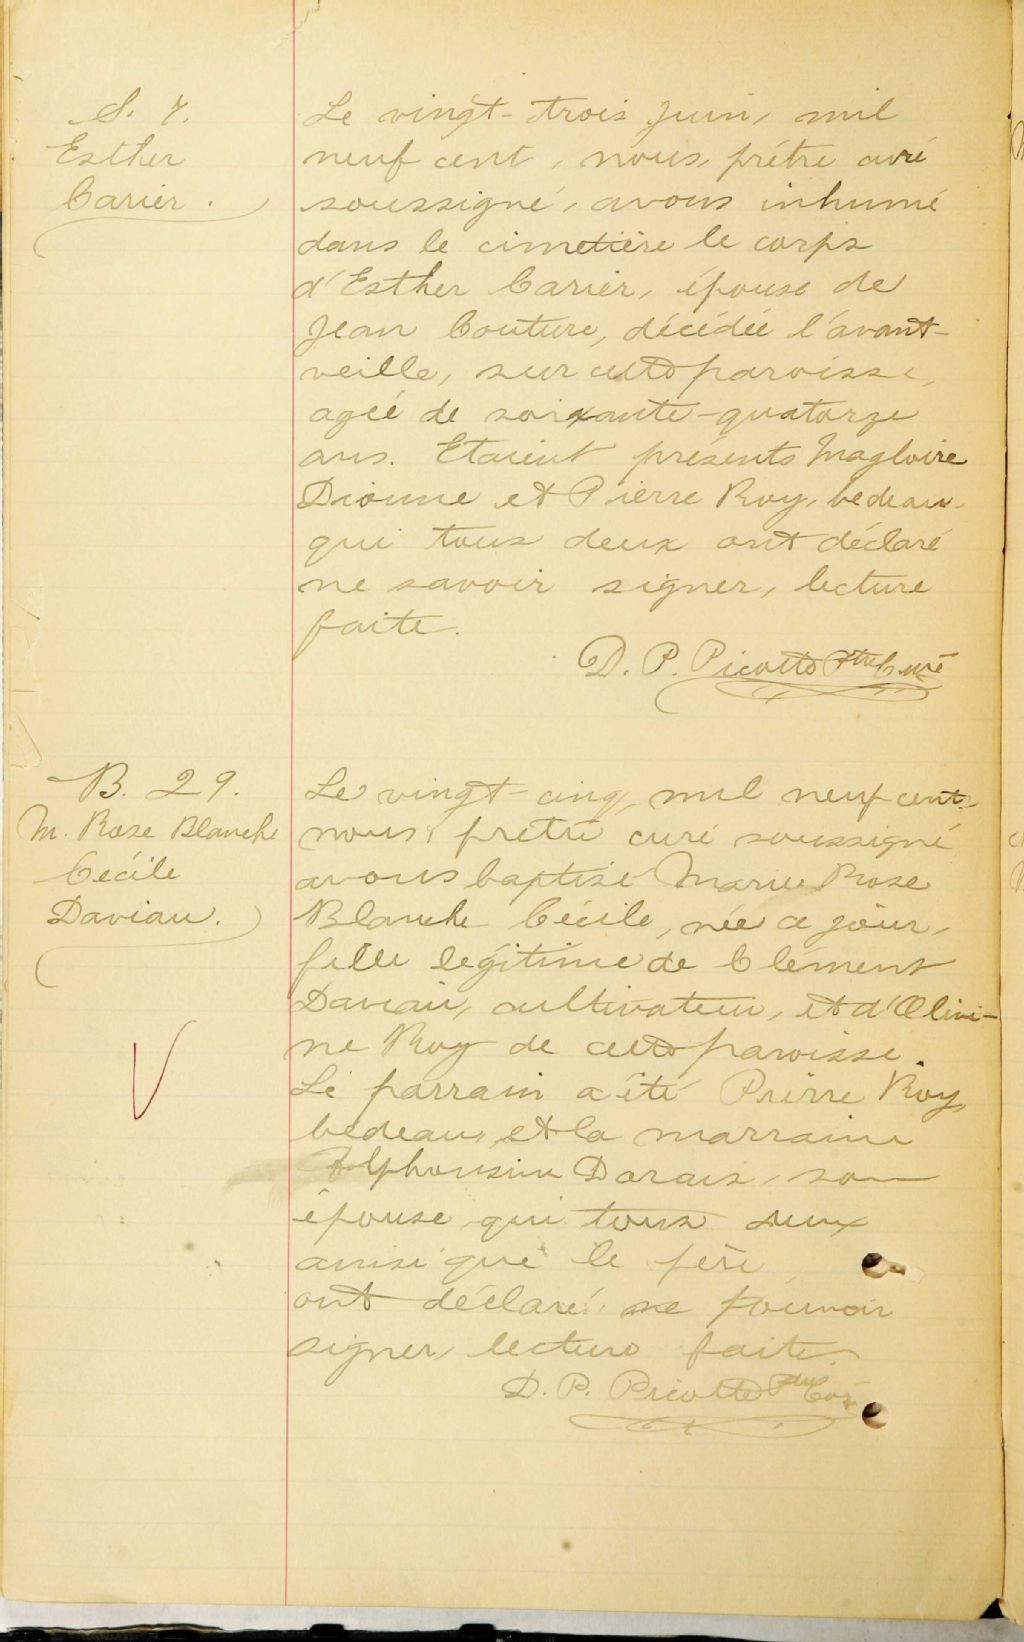 S. 7.
Esther
Carier.
Le vingt-trois juin, mil
neuf cent, nous, prêtre curé
soussigné, avons inhumé
dans le cimetière le corps
d'Esther Carier, épouse de
Jean Couture, décédée l'avant-
veille, sur cette paroisse,
agée de soixante-quatorze
ans. Etaient présents Magloire
Dionne et Pierre Roy, bedeau
qui tous deux ont déclaré
ne savoir signer, lecture
faite.
D. P. Picotte Ptre Curé
B. 29.
M. Rose Blanche
Cécile
Daviau.
Le vingt-cinq, mil neuf cent,
nous, prêtre curé soussigné
avons baptisé Marie Rose
Blanche Cécile, née ce jour,
fille légitime de Clément
Daviau, cultivateur, et d'Olivi-
ne Roy de cette paroisse.
Le parrain a été Pierre Roy,
bedeau, et la marraine
Alphonsine Darais, son
épouse qui tous deux
ainsi que le père
ont déclaré ne pouvoir
signer, lecture faite.
D. P. Picotte Ptre Curé